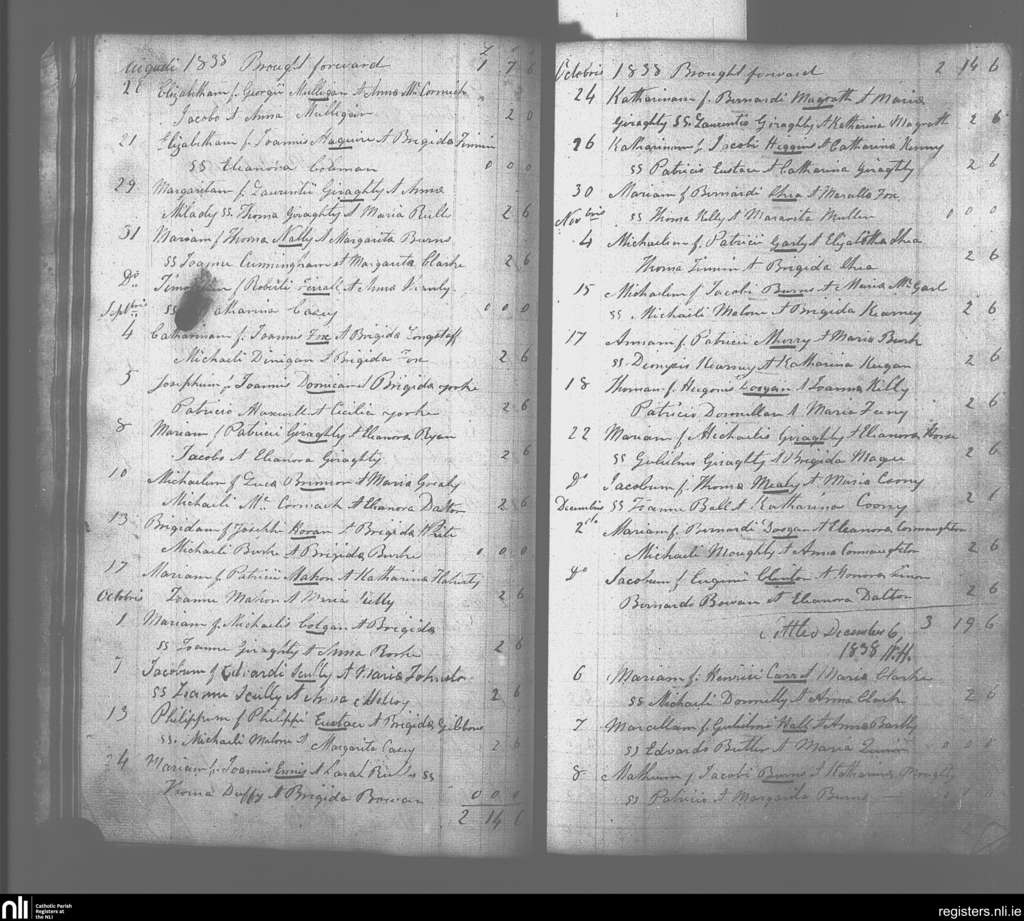 Augusti 1838 Brought forward 1 7 6
Elizabetham f. Georgii Mulligan et Anna McCormick
Jacobo et Anna Mulligan 2 0
21 Elizabetham f. Joannis Maguire et Brigida Finnin
SS Eleanora Coleman 0 0 0
29 Margaretam f. Laurentii Giraghty et Anna
Mlady SS. Thoma Giraghty et Maria Bulle 2 6
31 Mariam f Thoma Nally et Margarita Burns
SS Joanne Cunningham et Margarita Clarke 2 6
Do f Roberti Ferrall et Anna
Septbris SS Casey 0 0 0
4 Catharinam f. Joannis Fox et Brigida Longstaff
Michaeli Dinigan et Brigida Fox 2 6
5 Josephum f. Joannis Domican et Brigida yorke
Patricio Maxwell et Cicilia yorke 2 6
8 Mariam f Patricii Giraghty et Eleanora Ryan
Jacobo et Eleanora Giraghty 2 6
10 Michaelem f Luca et Maria
Michaeli Mc Cormack et Eleanora Dalton 2 6
13 Brigidam f Joseph Horan et Brigida White
Michaeli Burke et Brigida Burke 0 0 0
17 Mariam f Patricii Mahon et Katharina Flaherty
Octobris Joanne Mahon et Maria 2 6
1 Mariam f Michaelis Colgan et Brigida
SS Joanne Giraghty et Anna Rorke 2 6
7 Jacobum f Edvardi Scully et Maria Johnston
SS Joanne Scully et Anna 2 6
13 Philippum f Philippi Eustace et Brigida Gibbons
SS. Michaeli Malone et Margarita Casey 2 6
24 Mariam f. Joannis Ennis et Sarah SS
Thoma Duffy et Brigida Bowan 0 0 0
2 14 6
Octobris 1838 Brought forward 2 14 6
24 Katharinam f. Bernardi Magrath et Maria
Giraghty SS Laurentio Giraghty et Katharina Magrath 2 6
26 Katharinam f. Jacobi Heggins et Catharina Kenny
SS Patricio Eustace et Catharina Giraghty 2 6
30 Mariam f Bernardi Shea et Maralla Fox
Novbris SS Thoma Kelly et Margarita Muller 0 0 0
4 Michaelem f. Patricii Garty et Elizabetha Shea
Thoma Finnin et Brigida Shea 2 6
15 Michaelem f Jacobi Burns et Maria
SS. Michaeli Malone et Brigida Kearney 2 6
17 Annam f. Patricii Merry et Maria Burk
SS Dionysio Kearney et Katharina Keegan 2 6
18 Thomam f. Hugonis Googan et Joanna Killy
Patricio Donnellan et Maria Feeny 2 6
22 Mariam f. Michaelis Giraghty et Eleanora
SS Gulielmo Giraghty et Brigida Magee 2 6
Do Jacobum f. Thoma Mealy et Maria Coony
Decembris SS Joanne Ball et Katharina Coony 2 6
2do Mariam f. Bernardi Googan et Eleanora Connaughton
Michaeli Moughty et Anna Connaughton 2 6
Do Jacobum f Eugenii Clinton et Honora
Bernardo Bowan et Eleanora Dalton 2 6
Settled December 6 3 19 6
1838 N.H.
6 Mariam f. Henrici Carrol et Maria Clarke
SS Michaeli Donnelly et Anna Clark 2 6
7 Marcellam f. Gulielmi Hall et Anna Bartly
SS Edvardo Butler et Maria Quinn 0 0 0
8 f Jacobi Burns et Katharina Moughty
SS Patricio et Margarita Burns
nli Catholic Parish Registers at the NLI
registers.nli.ie